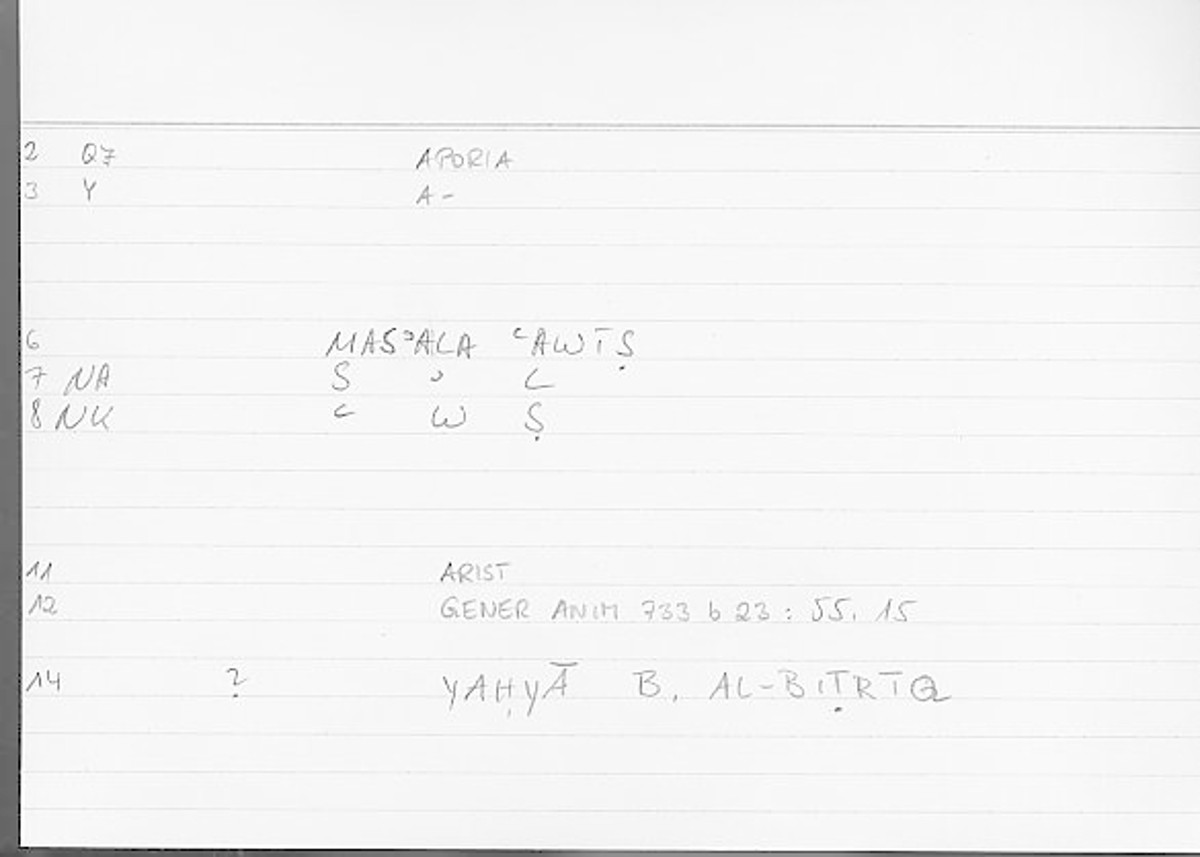 2 Q7 APORIA
3 Y A-
6 MASʾALA ʿAWĪṢ
7 NA S ʾ L
8 NK ʿ W Ṣ
11 ARIST
12 GENER ANIM 733 b 23 : 55. 15
14 ? YAḤYĀ B. AL-BIṬRĪQ